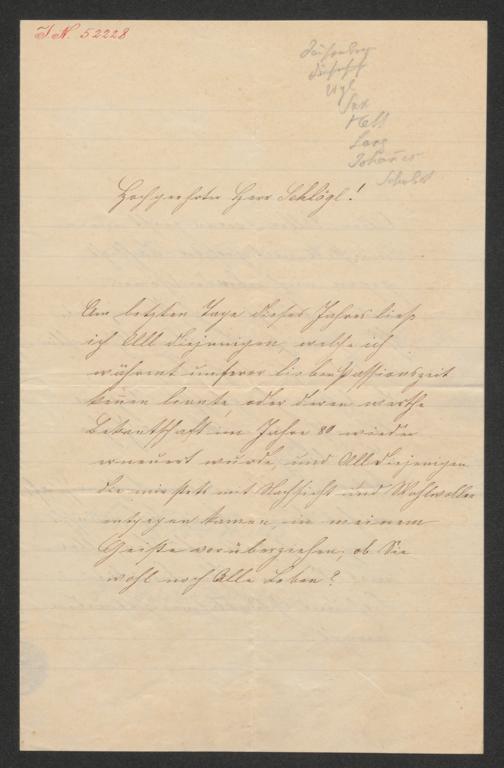 I.N. 52228
Vgl
Lang
Johannes
Schubert
Hochgeehrter Herr Schlögl!
Am letzten Tage dieses Jahres ließ
ich All diejenigen, welche ich
während unserer lieben Passionszeit
kenen lernte, oder deren werthe
Bekantschaft im Jahre 80 wieder
erneuert wurde, und All diejenigen
die mir stets mit Nachsicht und Wohlwollen
entgegen kamen, in meinem
Geiste vorüberziehen, ob Sie
wohl noch Alle Leben?